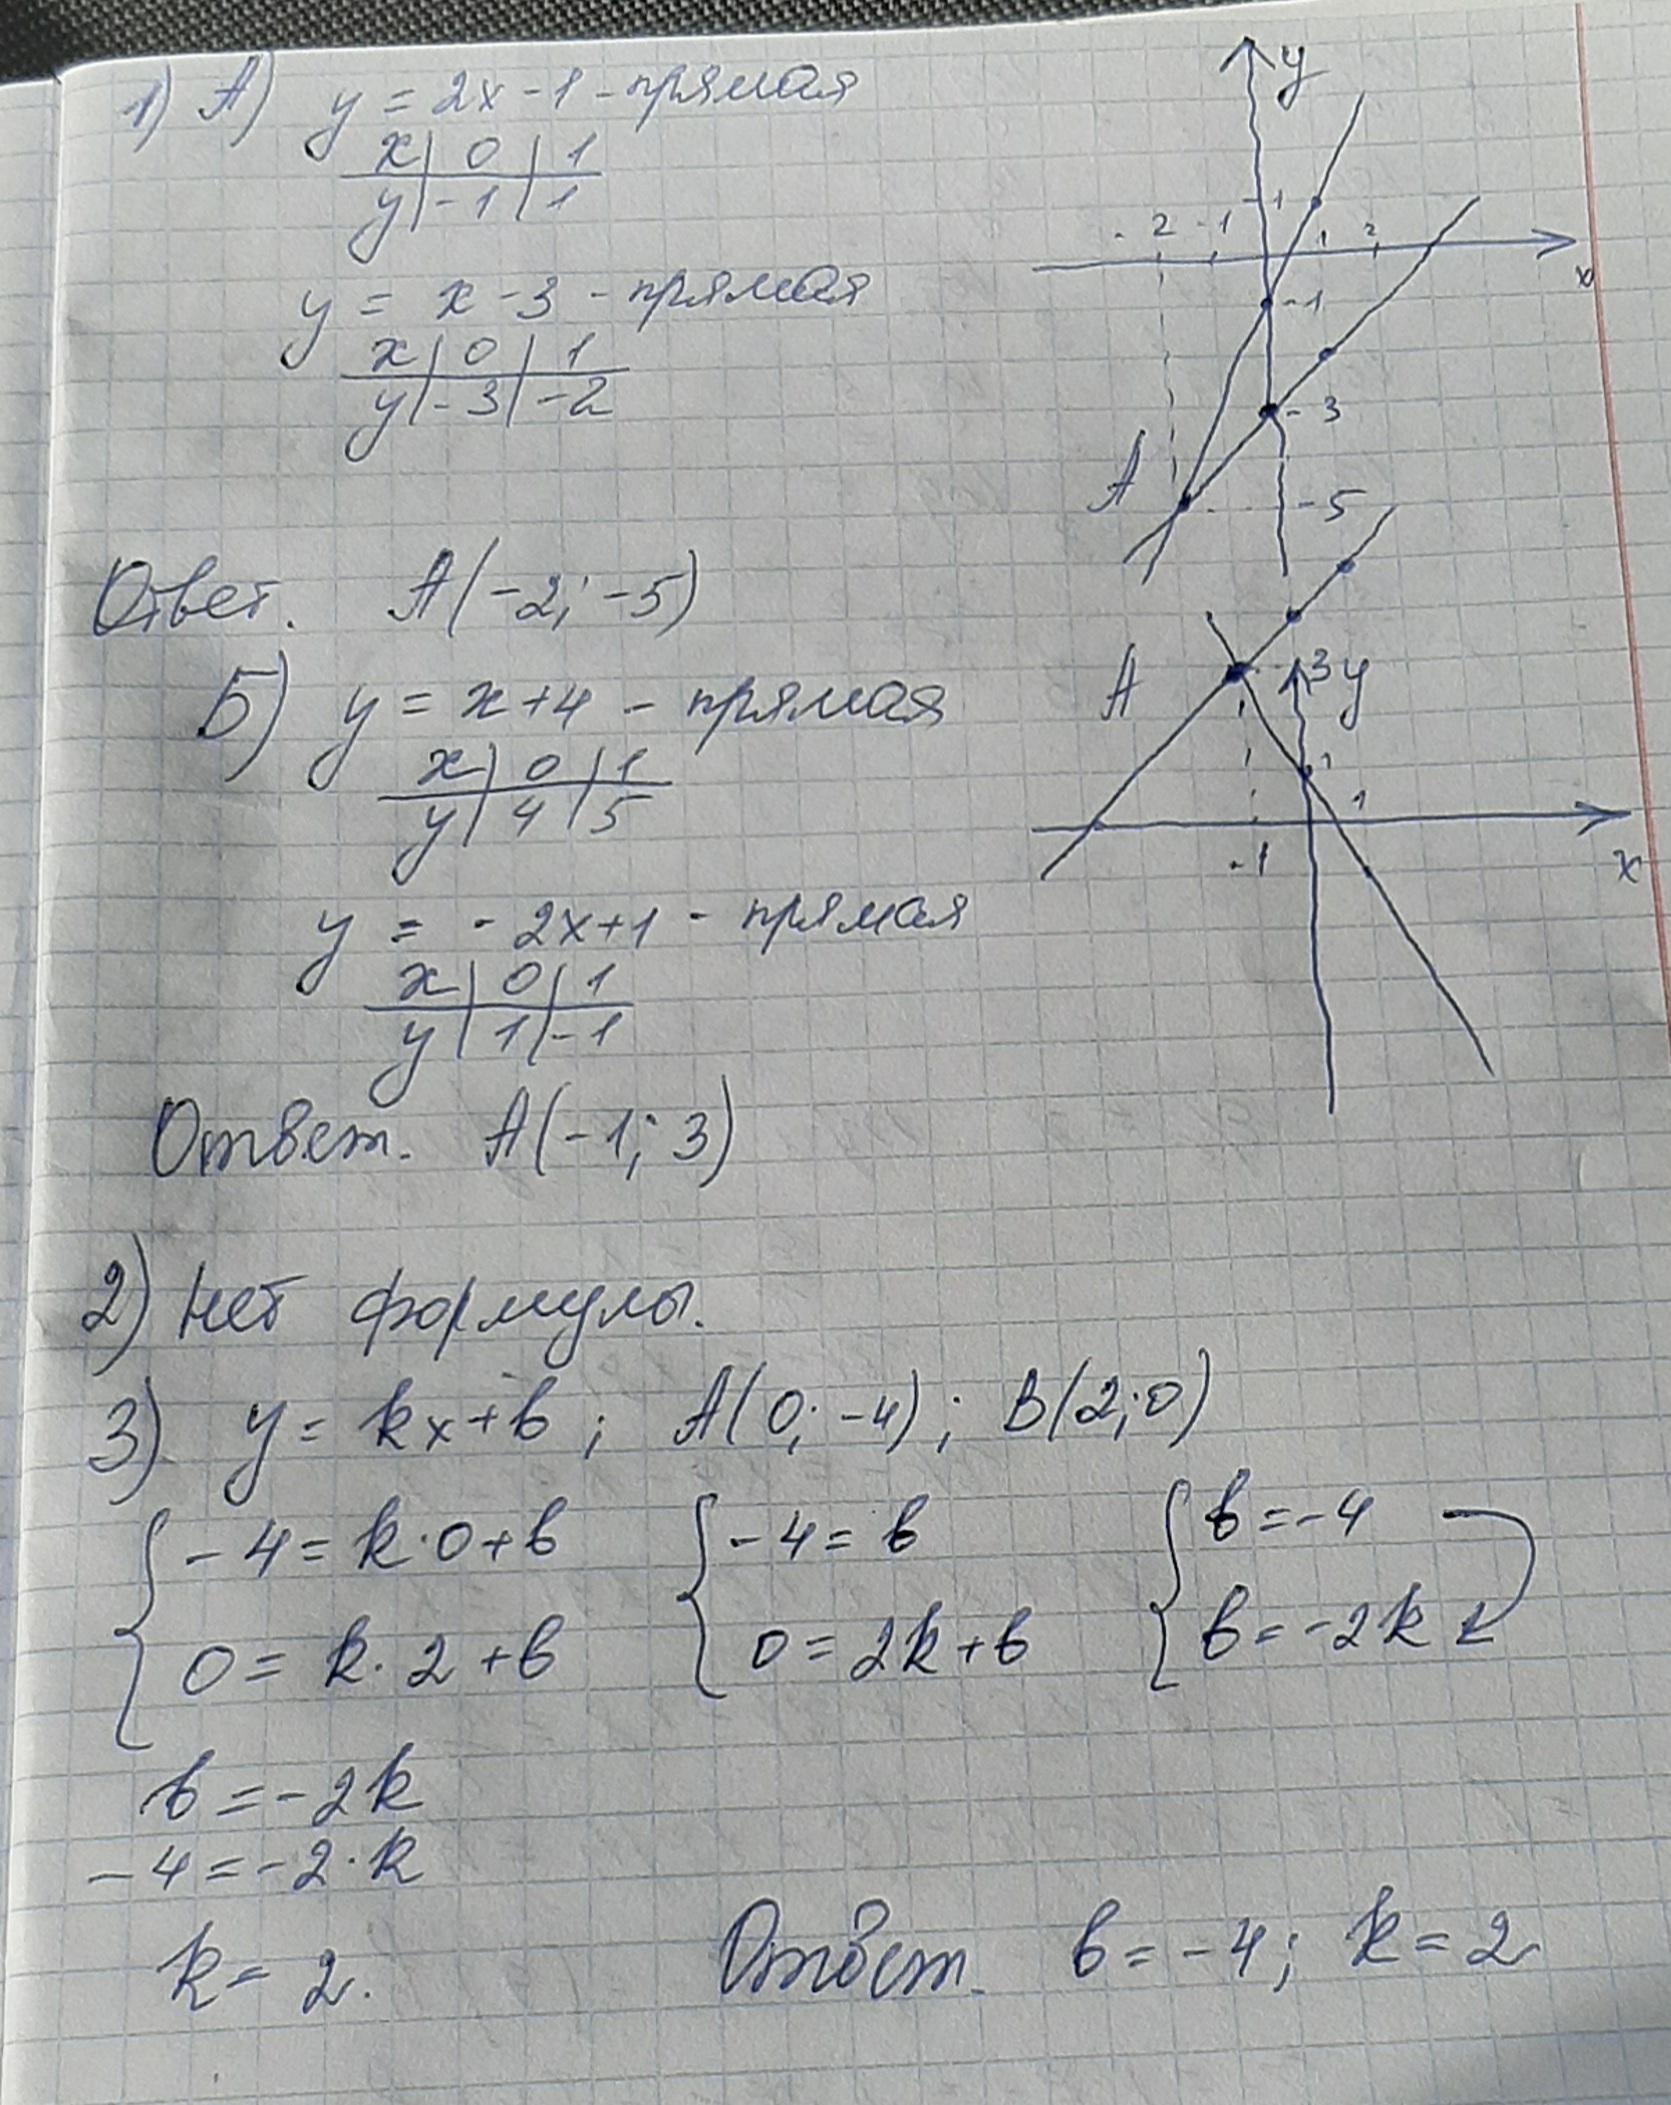 1) А) y = 2x - 1 - прямая
x | 0 | 1
y | -1 | 1
y = x - 3 - прямая
x | 0 | 1
y | -3 | -2
y
-2 -1 -1 1 2
x
-1
-3
А
-5
Ответ. А(-2; -5)
Б) y = x+4 - прямая
x | 0 | 1
y | 4 | 5
y = -2x+1 - прямая
x | 0 | 1
y | 1 | -1
А
3 y
1
1
-1
x
Ответ. А(-1; 3)
2) Нет формулы.
3) y = kx+b ; A(0; -4) ; B(2; 0)
{ -4 = k·0+b { -4 = b { b = -4
0 = k·2+b 0 = 2k+b b = -2k
b = -2k
-4 = -2·k
k = 2.
Ответ. b = -4; k = 2